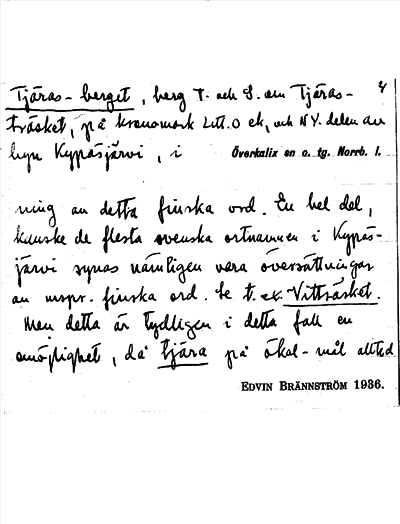 Tjäras-berget, berg V. och S. om Tjäras- 4
träsket, på kronomark Litt. O etc, och NV. delen av
byn Kypäsjärvi, i Överkalix sn o. tg. Norrb. l.
ning av detta finska ord. En hel del,
kanske de flesta svenska ortnamnen i Kypäs-
järvi synas nämligen vara översättningar
av urspr. finska ord. Se t. ex. Vitträsket.
Men detta är tydligen i detta fall en
omöjlighet, då tjära på ökal-mål alltid
EDVIN BRÄNNSTRÖM 1936.